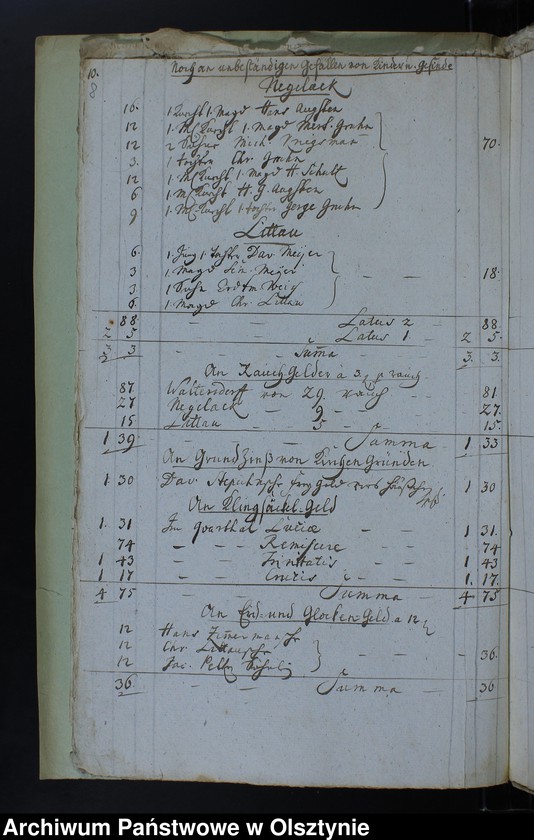 10.
8
Noch an unbeständigen Gefällen von Kindern u. Gesinde
Negelack
10. 1 Knecht 1. Magd Hans Augsten
12 1. Knecht 1. Magd Mert. Gruhn
12 2 Mich. 70.
3. 1 Tochter Chr. Gruhn
12 1. Knecht 1. Magd H. Schult
6 1. Knecht H. G. Augsten
9 1. Knecht 1. Tochter George Gruhn
Littau
6. 1. Jung 1. Tochter Dav. Meijer
3 1. Magd Meijer — — 18.
3 1 Sohn Erdtm. Weiß
6. 1. Magd Chr. Littau
88 — — Latus 2 — 88.
2 5 — — Latus 1 — 2 5.
3 3 — Suma — 3. 3.
An Rauch Gelder a 3 p Rauch
87 Waltersdorff von 29. Rauch — 81.
27 Negelack — 9 — — 27.
15 Littau — 5 — — 15.
1 39. — — Summa — 1 33
An Grund Zinß von Kirchen Gründen
1 30 Dav. 1 30
An Klingsäckel-Geld
1. 31 Im Quarthal Luciæ — — 1 31.
74 — — Remiscere — — 74
1 43 — — Trinitatis — 1 43
1 17 — — Crucis — — 1. 17.
4 75 — — Summa — 4 75
An Erd- und Glocken-Geld a 12
12 Hans
12 Chr. — — 36.
12 Jac.
36. — — Summa — 36
Archiwum Państwowe w Olsztynie